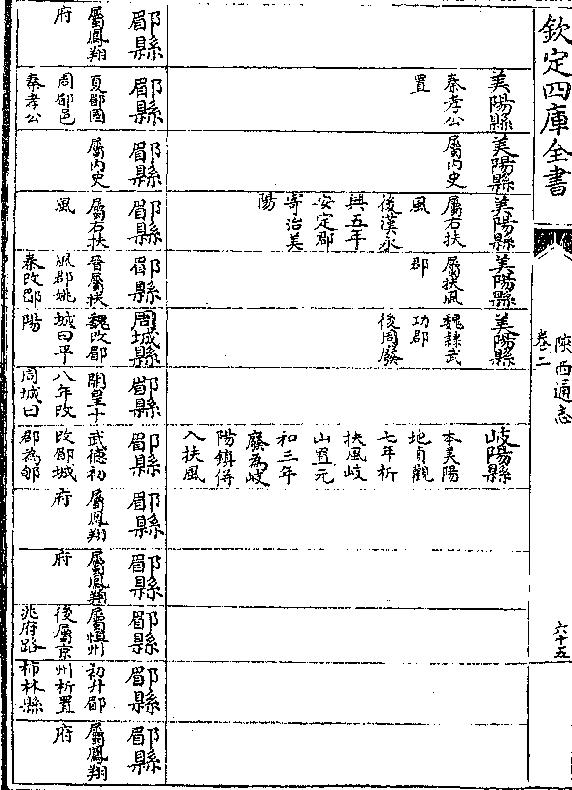 欽定四庫全書
陜西通志
卷二
六十五
美陽縣
秦孝公
置
美陽縣
屬內史
美陽縣
屬右扶
風
後漢永
興五年
安定郡
寄治美
陽
美陽縣
屬扶風
郡
美陽縣
魏隸武
功郡
後周廢
岐陽縣
本美陽
地貞觀
七年析
扶風岐
山置元
和三年
廢為岐
陽鎮併
入扶風
郿縣
屬鳳翔
府
郿縣
夏郿國
周郿邑
秦孝公
郿縣
屬內史
郿縣
屬右扶
風
郿縣
晉屬扶
風郡姚
秦改郿
周城縣
魏改郿
城曰平
陽
郿縣
開皇十
八年改
周城曰
郿縣
武德初
改郿城
郡為郇
郿縣
屬鳳翔
府
郿縣
屬鳳翔
府
郿縣
屬恒州
後屬京
兆府路
郿縣
初升郿
州析置
柿林縣
郿縣
屬鳳翔
府